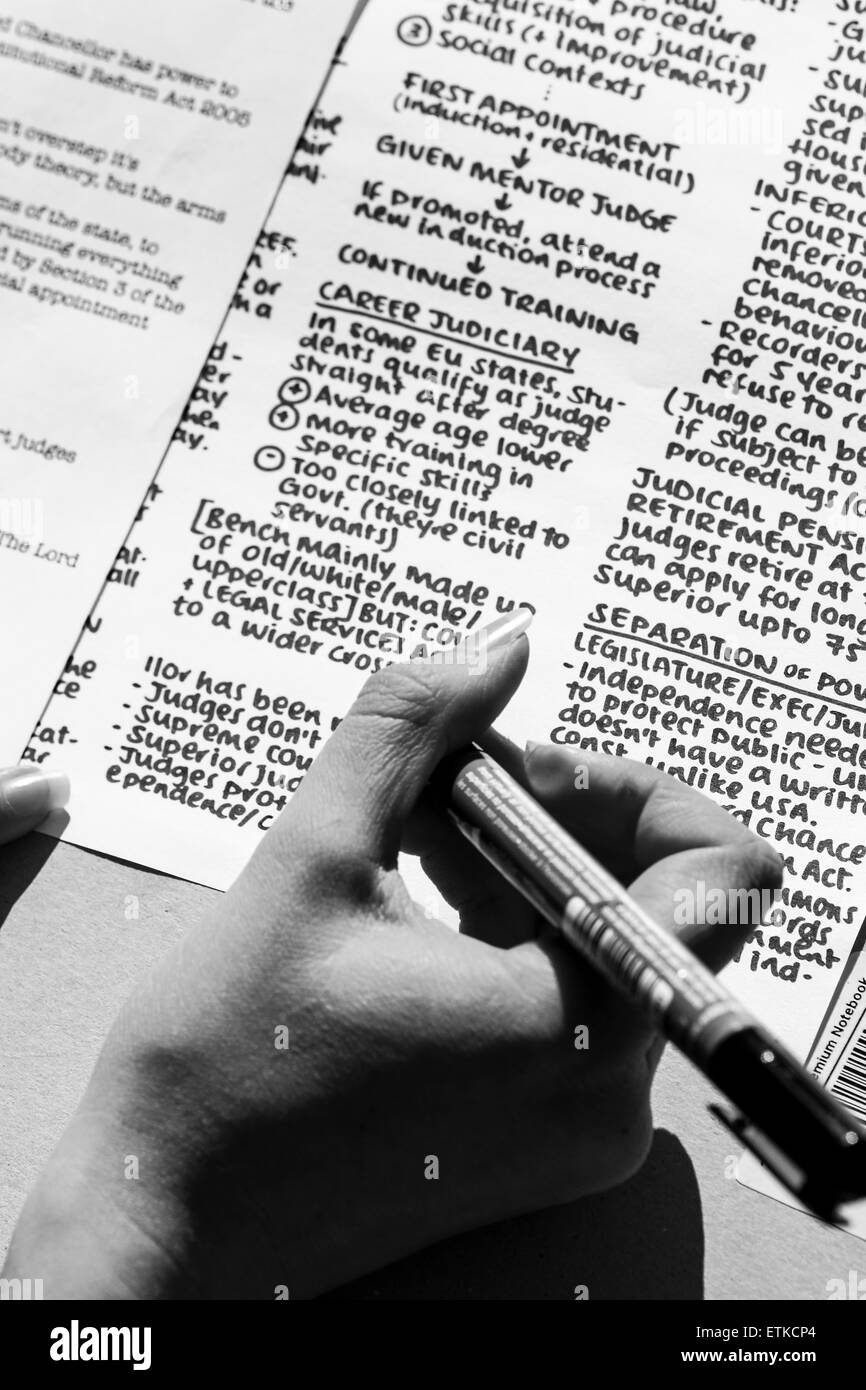 t Chancellor has power to
stitutional Reform Act 2005
n't overstep it's
ody theory, but the arms
ms of the state, to
running everything
d by Section 3 of the
cial appointment
rt judges
The Lord
law,
+ procedure
acquisition of judicial
skills (+ improvement)
③ social contexts
FIRST APPOINTMENT
(induction + residential)
↓
GIVEN MENTOR JUDGE
↓
If promoted, attend a
new induction process
↓
CONTINUED TRAINING
CAREER JUDICIARY
In some EU states, stu-
dents qualify as judge
straight after degree
⊕ Average age lower
⊕ More training in
specific skills
⊖ Too closely linked to
Govt. (they're civil
servants)
[Bench mainly made up
of old/white/male/
upperclass] BUT: COU
+ LEGAL SERVICES A
to a wider cross
llor has been r
- Judges don't
- Supreme cou
- Superior jud
- Judges prot
ependence/c
- G
jud
- Sub
sup
sed i
Hous
given
INFERIO
- COURT
inferio
removed
chancell
behaviou
- Recorders
for 5 year
refuse to re
(Judge can be
if subject to
proceedings (c
JUDICIAL PENSI
RETIREMENT AC
Judges retire at
can apply for long
Superior upto 75
SEPARATION OF POW
LEGISLATURE/EXEC/JUD
- Independence neede
to protect public - UK
doesn't have a writte
const. unlike USA.
rd Chance
m Act.
mmons
ords
nment
ind-
emium Notebook
alamy
Image ID: ETKCP4
www.alamy.com